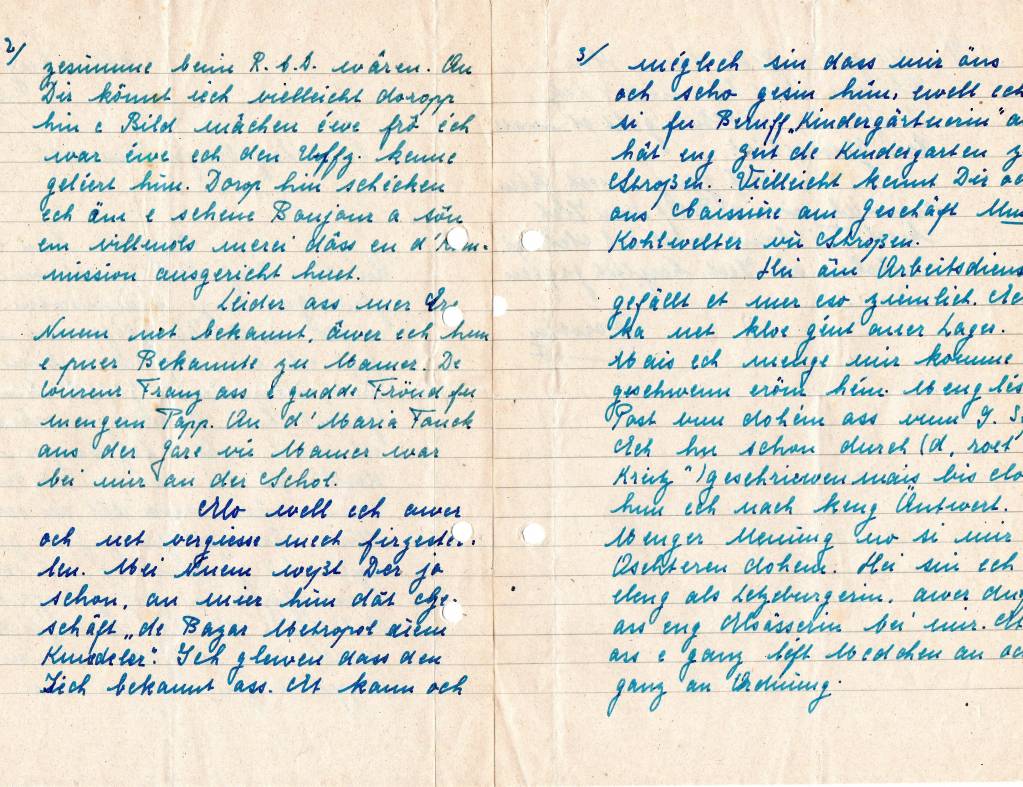 2/
zesumme beim R.A.D. wären. An
Dir kömet iech vielleicht doropp
hin e Bild mächen éwe frô ech
war éwe ech den Uffz. kenne
geléert hun. Dorop hin schécken
ech äm e schene Boujour a són
em villmols merci dâss en d'Kom-
mission ausgericht huet.
Leider ass mer Ere
Numm net bekannt, äwer ech hun
e puer Bekannte zu Mamer. De
Franz ass e gudde Frönd fu
mengem Papp. An d'Maria Fonck
aus der Gare vu Mamer war
bei mir an der Schol.
Elo well ech awer
och net vergiesse mech firzestel-
len. Mei Numm weßt Der jo
schon, an mier hun dât Ge-
schäft „de Bazar Metropol um
Knuedeler". Ich glewen dass den
Iech bekannt ass. Et kann och
3/
méglech sin dass mir äns
och scho gesin hun, well ech
si fu Beruff „Kindergärtnerin" an
hât eng Zeit de Kindergarten z
Stroßen. Vielleicht kennt Dir och
ons Caissière am Geschäft
Kohlwelter vu Stroßen.
Hei äm Arbeitsdiens
gefällt et mer eso ziemlich. Ee
ka net kloe géint anner Lager.
Mais ech menge mir komme
geschwenn eröm hém. Meng lés
Post vun dohém ass vum 9. S
Ech hu schon durch (d, rout
Kreiz") geschriewen mais bis elo
hun ech nach keng Äntwert.
Menger Menung no si mir
Oschteren dohém. Hei sin ech
eleng als Letzeburgerin, awer du
ass eng Elsässerin bei mir. Et
ass e ganz léift Medchen an och
ganz an Ordnung.